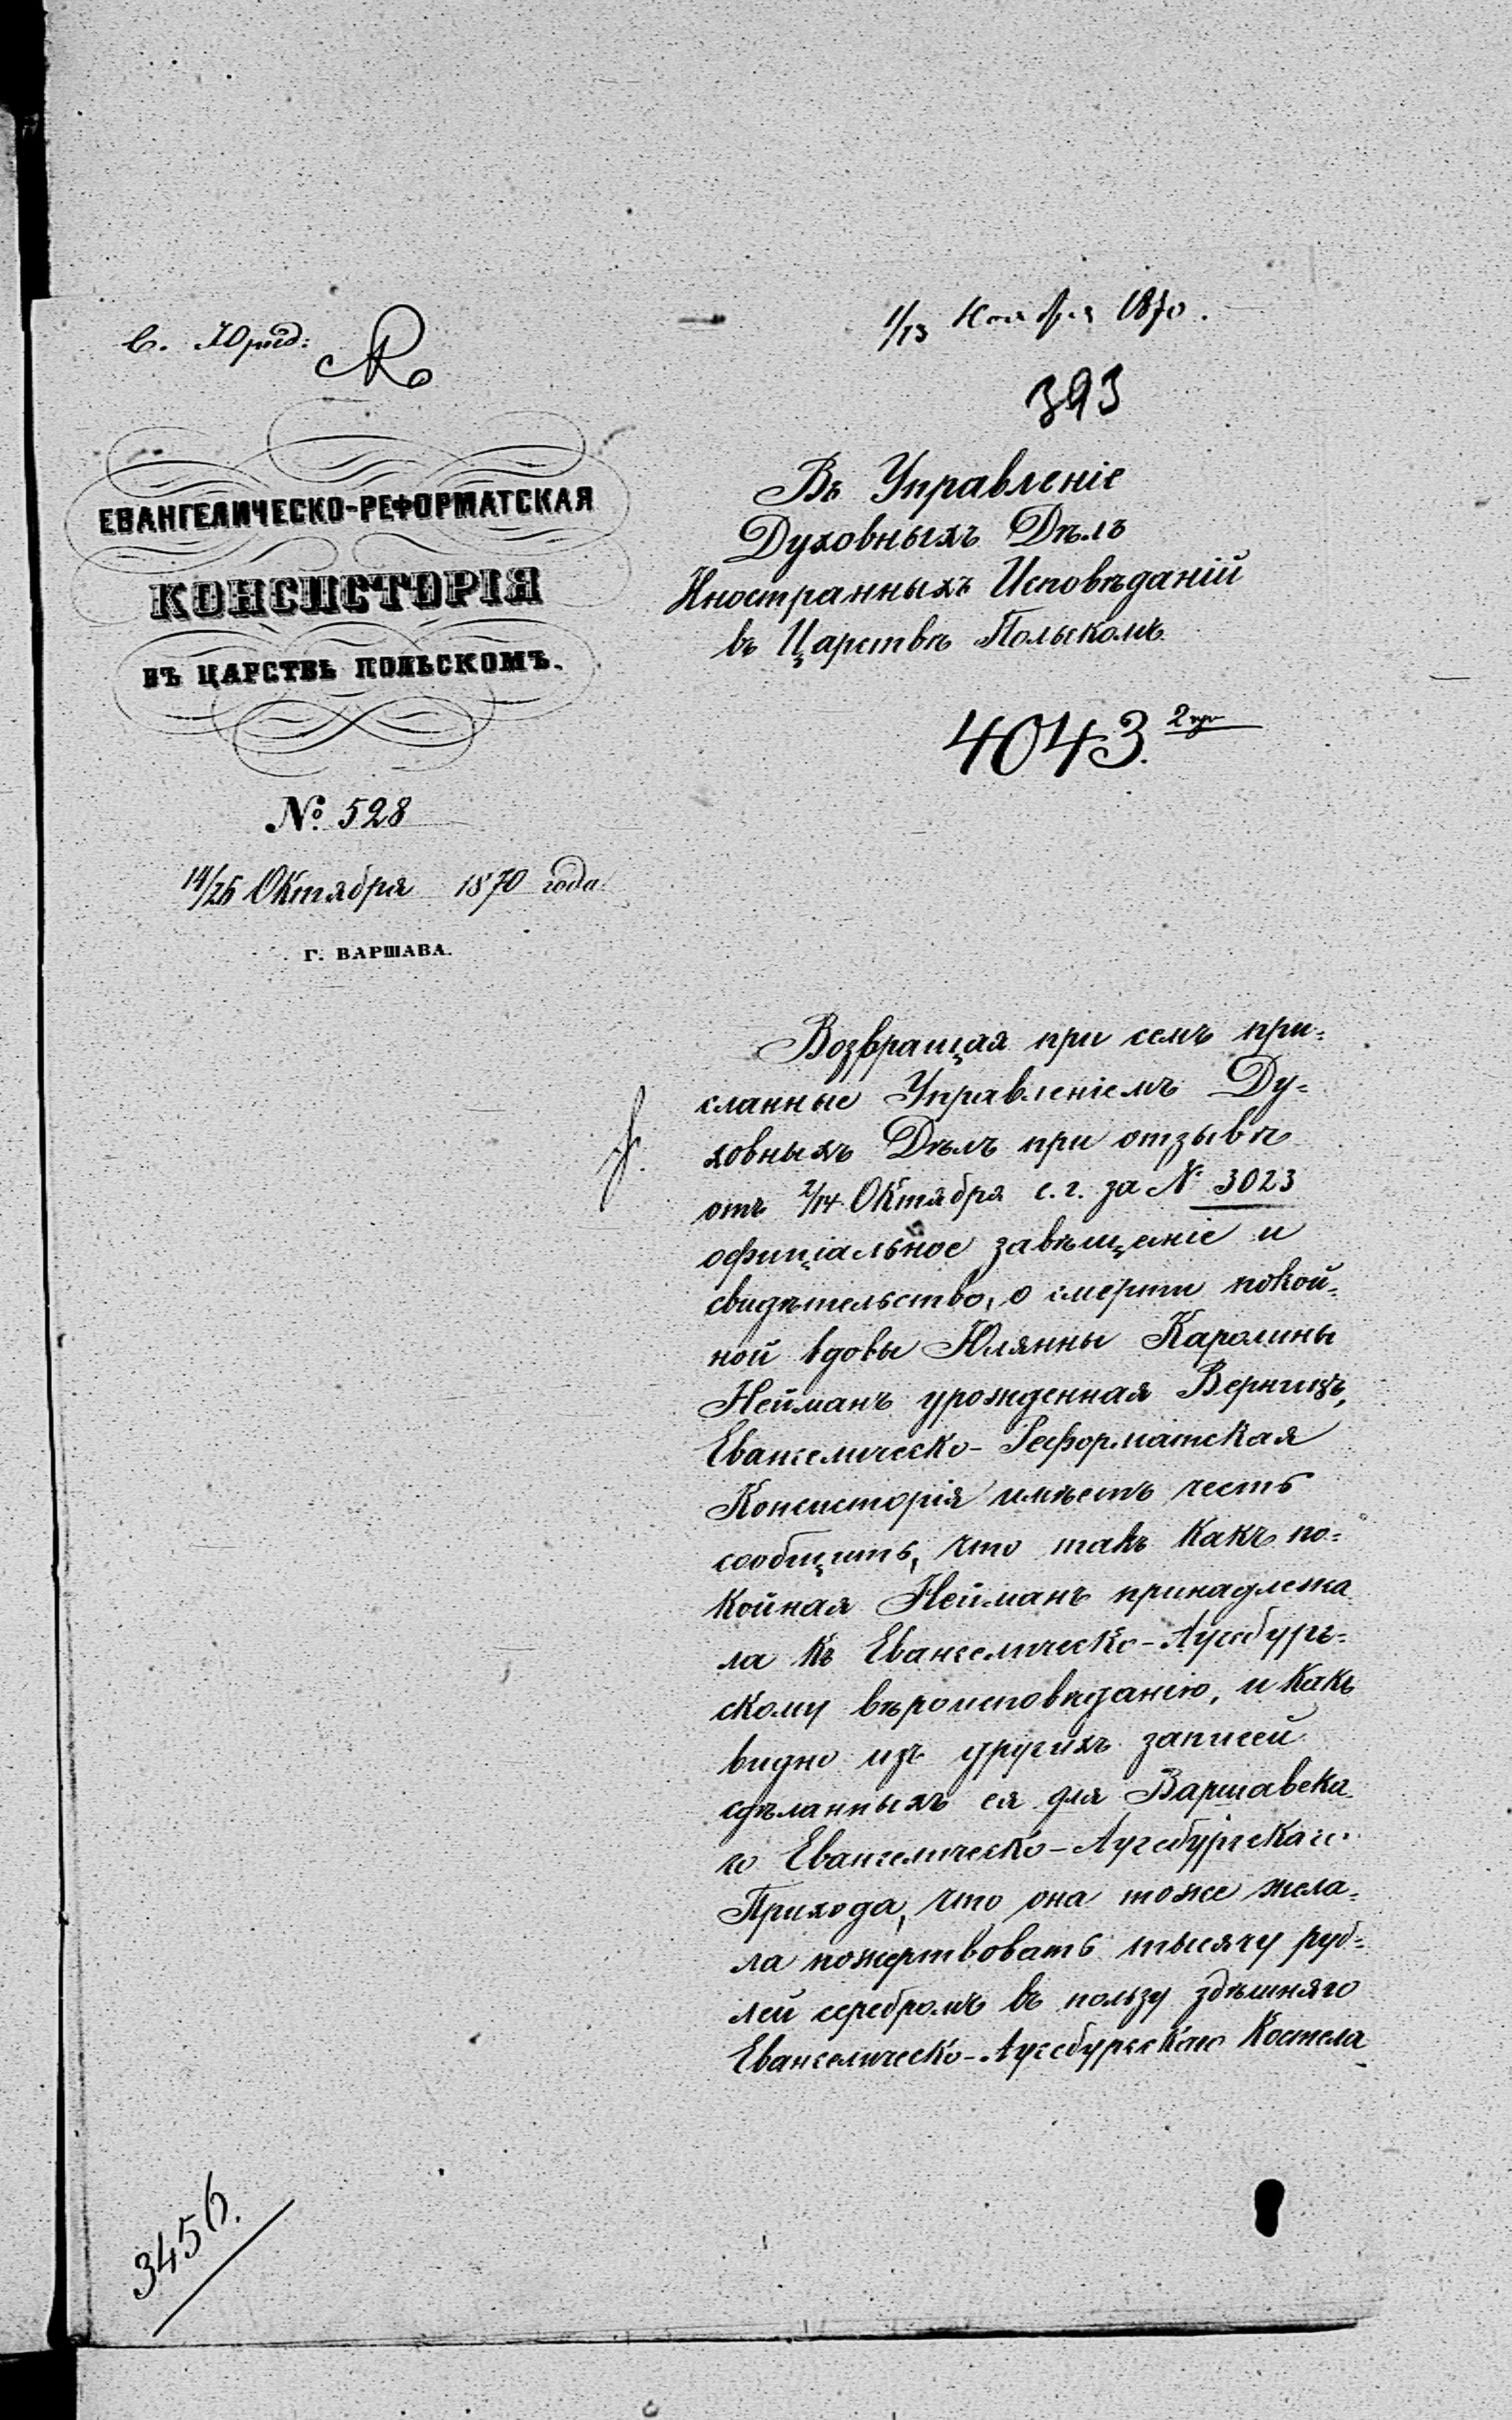 в. Юрид:
1/13 Ноября 1870.
393
ЕВАНГЕЛИЧЕСКО-РЕФОРМАТСКАЯ
КОНСИСТОРІЯ
ВЪ ЦАРСТВѢ ПОЛЬСКОМЪ.
№ 528
14/26 Октября 1870 года.
Г. ВАРШАВА.
Въ Управленіе
Духовныхъ Дѣлъ
Иностранныхъ Исповѣданій
въ Царствѣ Польскомъ
4043.
Возвращая при семъ при=
сланные Управленіемъ Ду=
ховныхъ Дѣлъ при отзывѣ
отъ 2/14 Октября с. г. за № 3023
офиціальное завѣщаніе и
свидѣтельство, о смерти покой=
ной вдовы Юлянны Каролины
Нейманъ урожденная Верницъ,
Евангелическо-Реформатская
Консисторія имѣетъ честь
сообщить, что такъ какъ по=
койная Нейманъ принадлежа
ла къ Евангелическо-Аугсбург=
скому вѣроисповѣданію, и какъ
видно изъ другихъ записей
сдѣланныхъ ея для Варшавска
го Евангелическо-Аугсбургскаго
Прихода, что она тоже жела=
ла пожертвовать тысячу руб=
лей серебромъ въ пользу здѣшняго
Евангелическо-Аугсбургскаго Костела
3456.